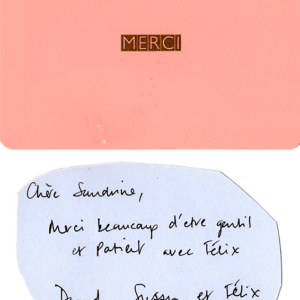 MERCI
Chère Sandrine,
Merci beaucoup d'etre gentil
et Patient avec Félix
et Félix